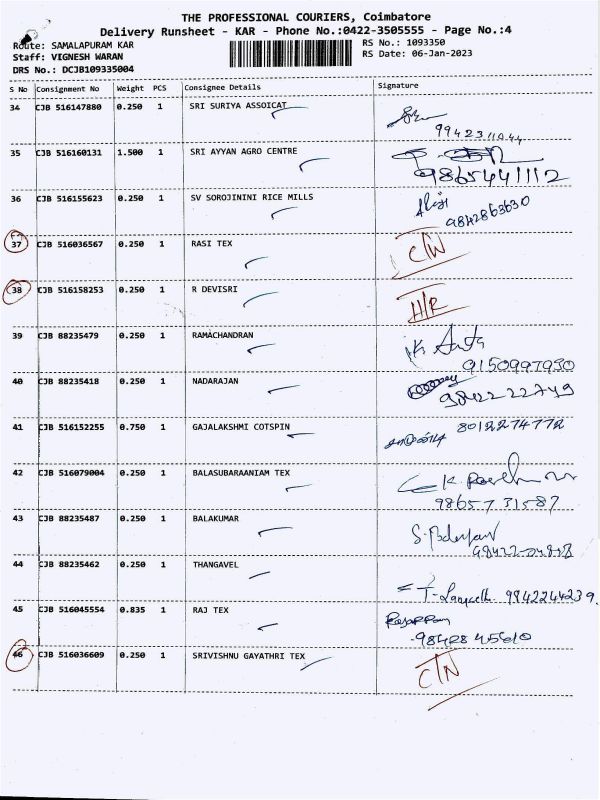 THE PROFESSIONAL COURIERS, Coimbatore
Delivery Runsheet - KAR - Phone No.:0422-3505555 - Page No.:4
Route: SAMALAPURAM KAR
RS No.: 1093350
Staff: VIGNESH WARAN
RS Date: 06-Jan-2023
DRS No.: DCJB109335004
S No Consignment No Weight PCS Consignee Details Signature
34 CJB 516147880 0.250 1 SRI SURIYA ASSOICAT
35 CJB 516160131 1.500 1 SRI AYYAN AGRO CENTRE
9865441112
36 CJB 516155623 0.250 1 SV SOROJININI RICE MILLS
9842863630
37 CJB 516036567 0.250 1 RASI TEX
38 CJB 516158253 0.250 1 R DEVISRI H/R
39 CJB 88235479 0.250 1 RAMACHANDRAN
40 CJB 88235418 0.250 1 NADARAJAN
9842222749
41 CJB 516152255 0.750 1 GAJALAKSHMI COTSPIN 8012274772
42 CJB 516079004 0.250 1 BALASUBARAANIAM TEX
9865731587
43 CJB 88235487 0.250 1 BALAKUMAR
44 CJB 88235462 0.250 1 THANGAVEL
9942244239
45 CJB 516045554 0.835 1 RAJ TEX
9842845610
46 CJB 516036609 0.250 1 SRIVISHNU GAYATHRI TEX